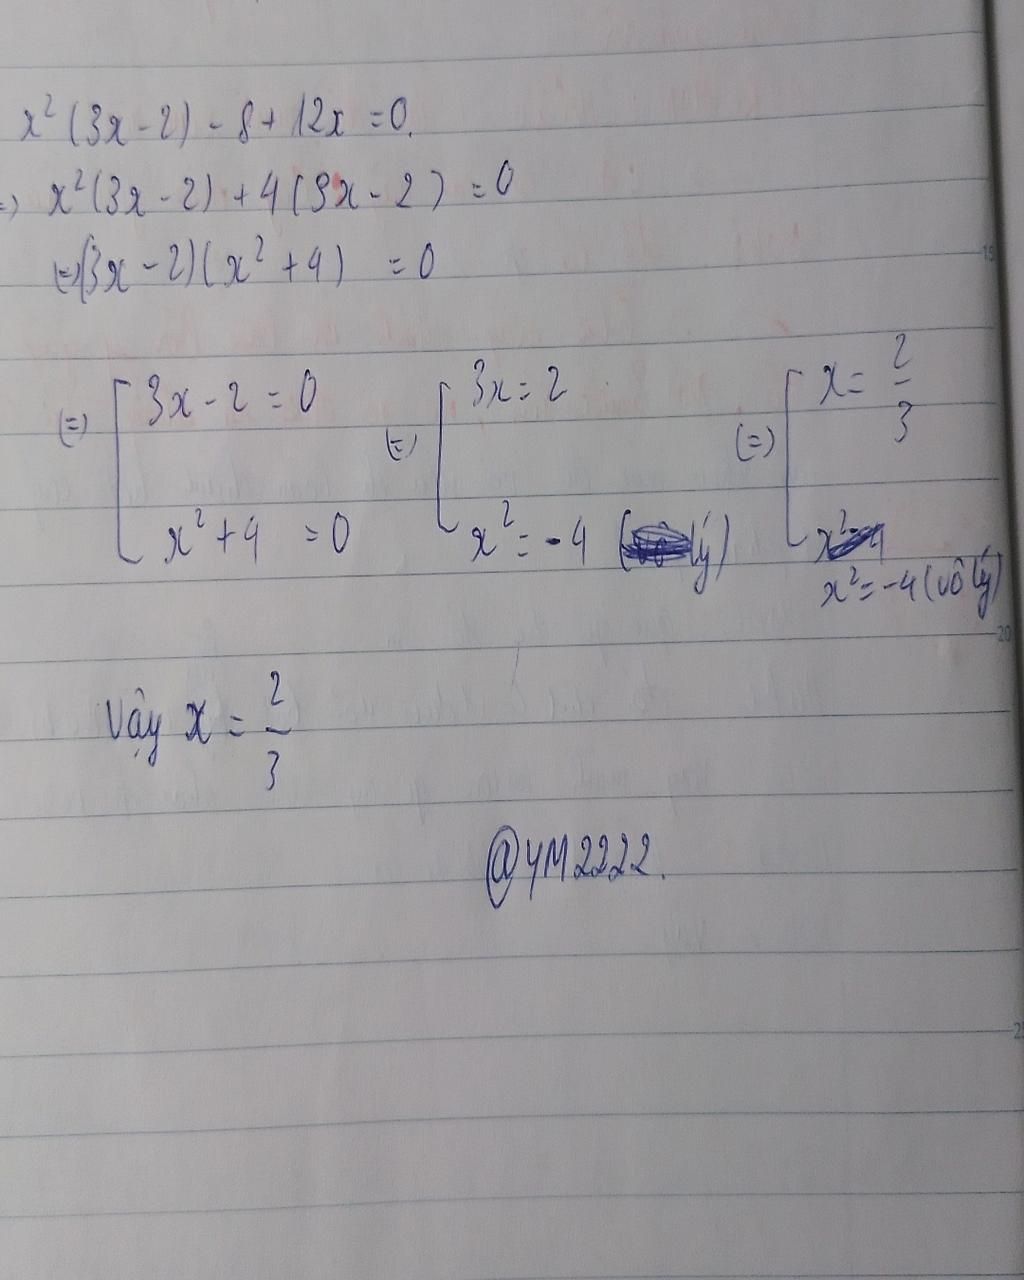 x²(3x-2)-8+12x=0.
=) x²(3x-2)+4(3x-2)=0
(=)(3x-2)(x²+4) =0
(=) [ 3x-2=0 (=) [ 3x=2 (=) [ x=2/3
x²+4 =0 x²=-4 ( lý) x²=-4(vô lý)
Vậy x=2/3
@YM2222.
19
20